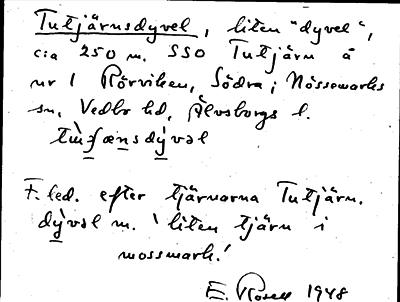 Tutjärnsdyvel, liten "dyvel",
c:a 250 m. SSO Tutjärn å
nr 1 Rörviken, Södra; Nössemarks
sn, Vedbo hd, Älvsborgs l.
F. led. efter tjärnarna Tutjärn.
dỳvəl m. 'liten tjärn i
mossmark.'
E. Rosell 1948